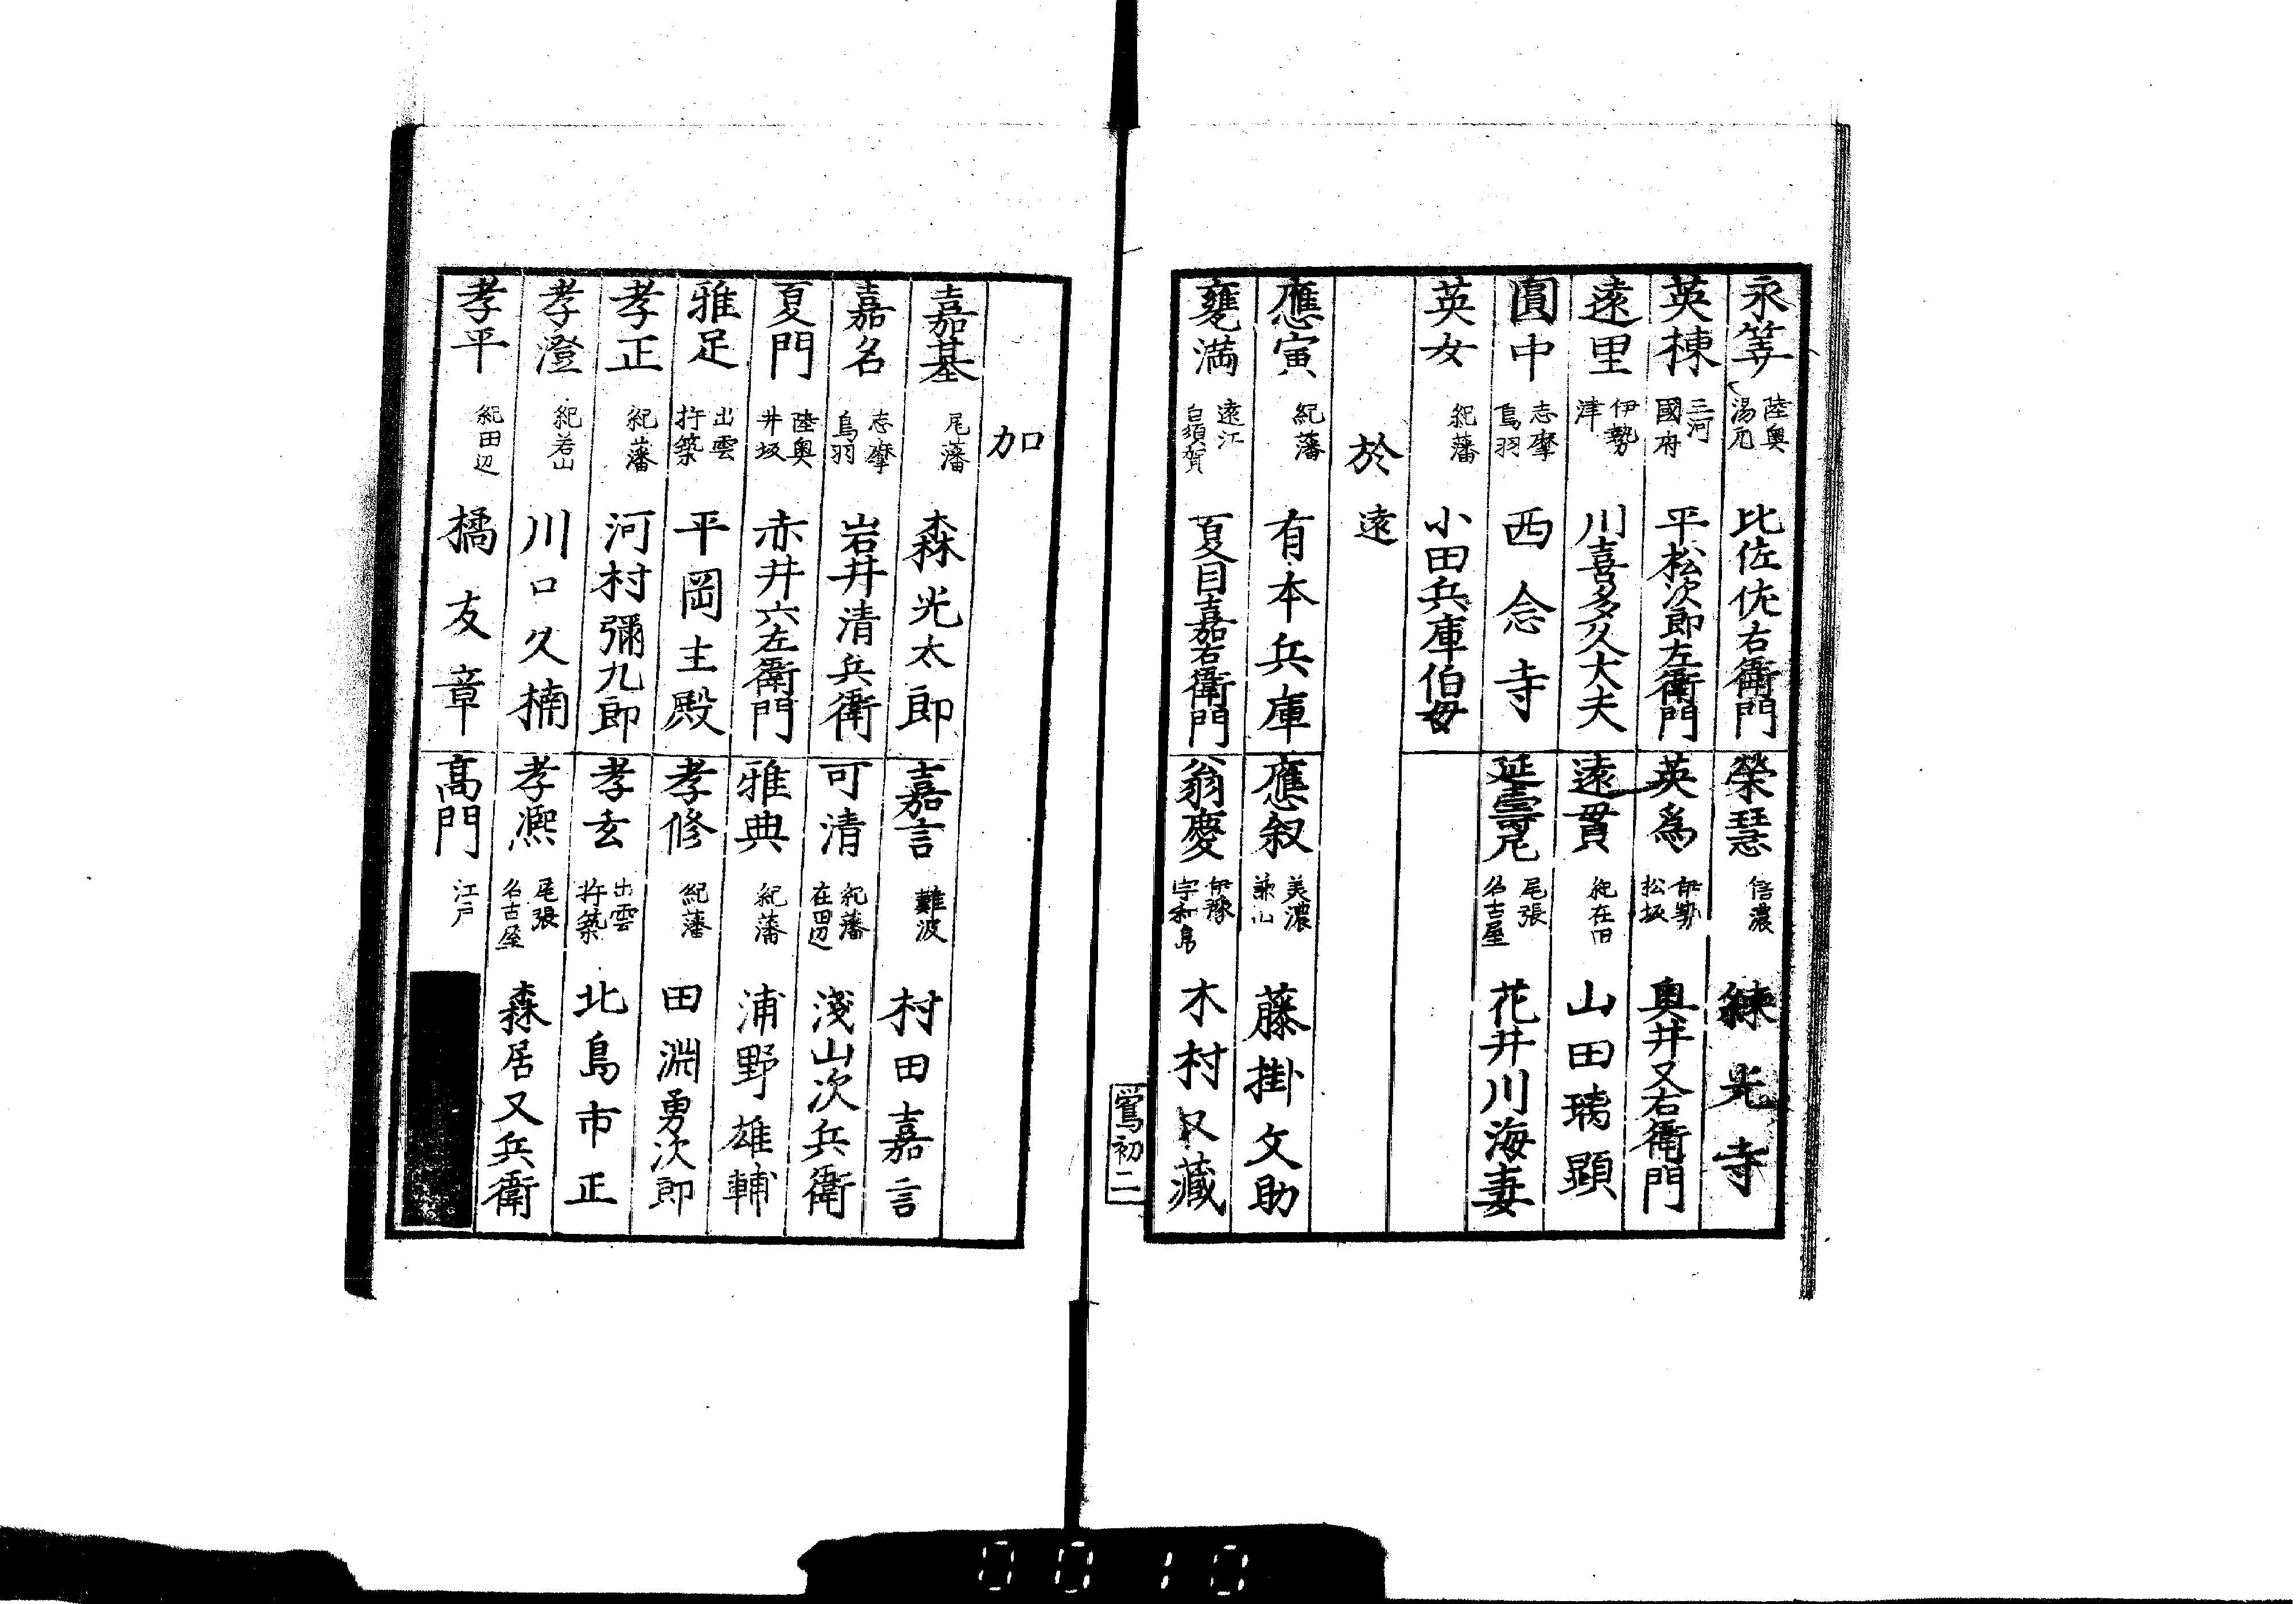 永筭 陸奥湯元 比佐佐右衛門
英棟 三河國府 平松次郎左衛門
遠里 伊勢津 川喜多久大夫
圓中 志摩鳥羽 西念寺
英女 紀藩 小田兵庫伯母
於遠
應寅 紀藩 有本兵庫
甕満 遠江白須賀 夏目嘉右衛門
榮慧 信濃 練光寺
英為 伊勢松坂 奥井又右衛門
遠貫 紀在田 山田璃顕
延壽尼 尾張名古屋 花井川海妻
應叙 美濃兼山 藤掛文助
翁慶 伊豫宇和島 木村又藏
鴬初二
加
嘉基 尾藩 森光太郎
嘉名 志摩鳥羽 岩井清兵衛
夏門 陸奥井坂 赤井六左衛門
雅足 出雲杵築 平岡主殿
孝正 紀藩 河村彌九郎
孝澄 紀若山 川口久楠
孝平 紀田辺 橘友章
嘉言 難波 村田嘉言
可清 紀藩在田辺 淺山次兵衛
雅典 紀藩 浦野雄輔
孝修 紀藩 田淵勇次郎
孝玄 出雲杵築 北島市正
孝凞 尾張名古屋 森居又兵衛
高門 江戸
0010